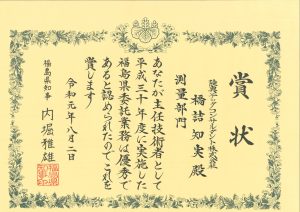 賞状
陸奥テックコンサルタント株式会社
橋詰知実殿
測量部門
あなたが主任技術者として
平成三十年度に実施した
福島県委託業務は優秀で
あると認められたのでこれを
賞します
令和元年八月二日
福島県知事 内堀雅雄